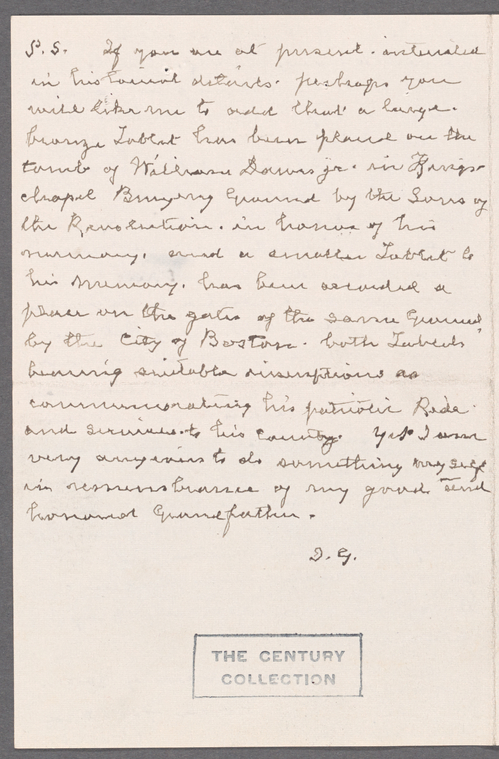 P.S. If you are at present interested
in historical details perhaps you
will like me to add that a large
bronze Tablet has been placed on the
tomb of William Dawes jr. in Kings
chapel Burying Ground by the Sons of
the Revolution. in honor of his
memory. and a smaller Tablet to
his memory. has been accorded a
place on the gates of the same Ground
by the City of Boston. both Tablets
bearing suitable inscriptions as
commemorating his patriotic Ride
and services to his country. Yet I am
very anxious to do something myself
in remembrance of my good and
honored Grandfather.
D. G.
THE CENTURY
COLLECTION